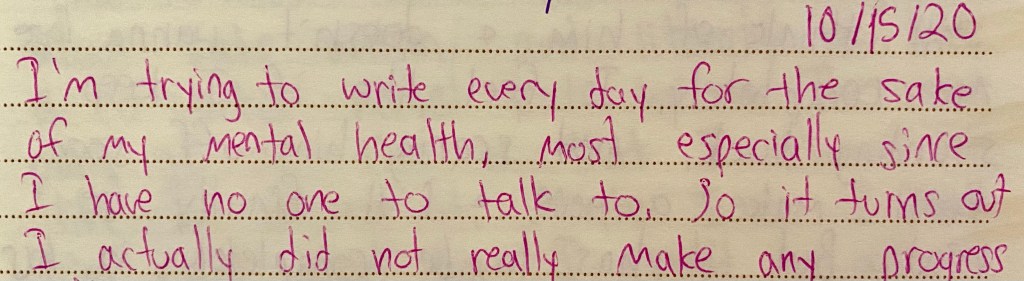 10/15/20
I'm trying to write every day for the sake
of my mental health, most especially since
I have no one to talk to. So it turns out
I actually did not really make any progress